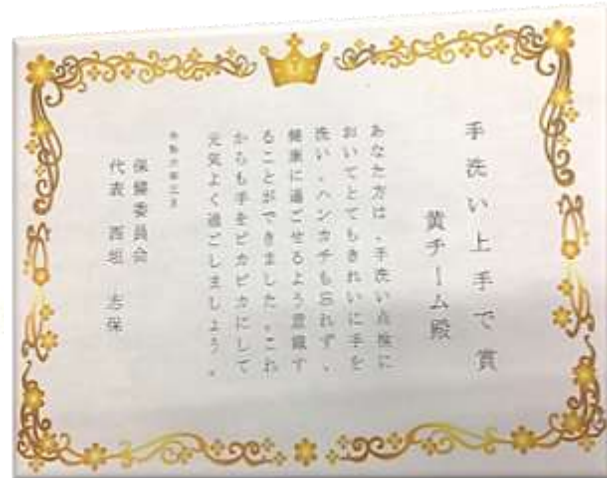 手洗い上手で賞
黄チーム殿
あなた方は、手洗い点検に
おいてとてもきれいに手を
洗い、ハンカチも忘れず、
健康に過ごせるよう意識す
ることができました。これ
からも手をピカピカにして
元気よく過ごしましょう。
保健委員会
代表 西垣 志保